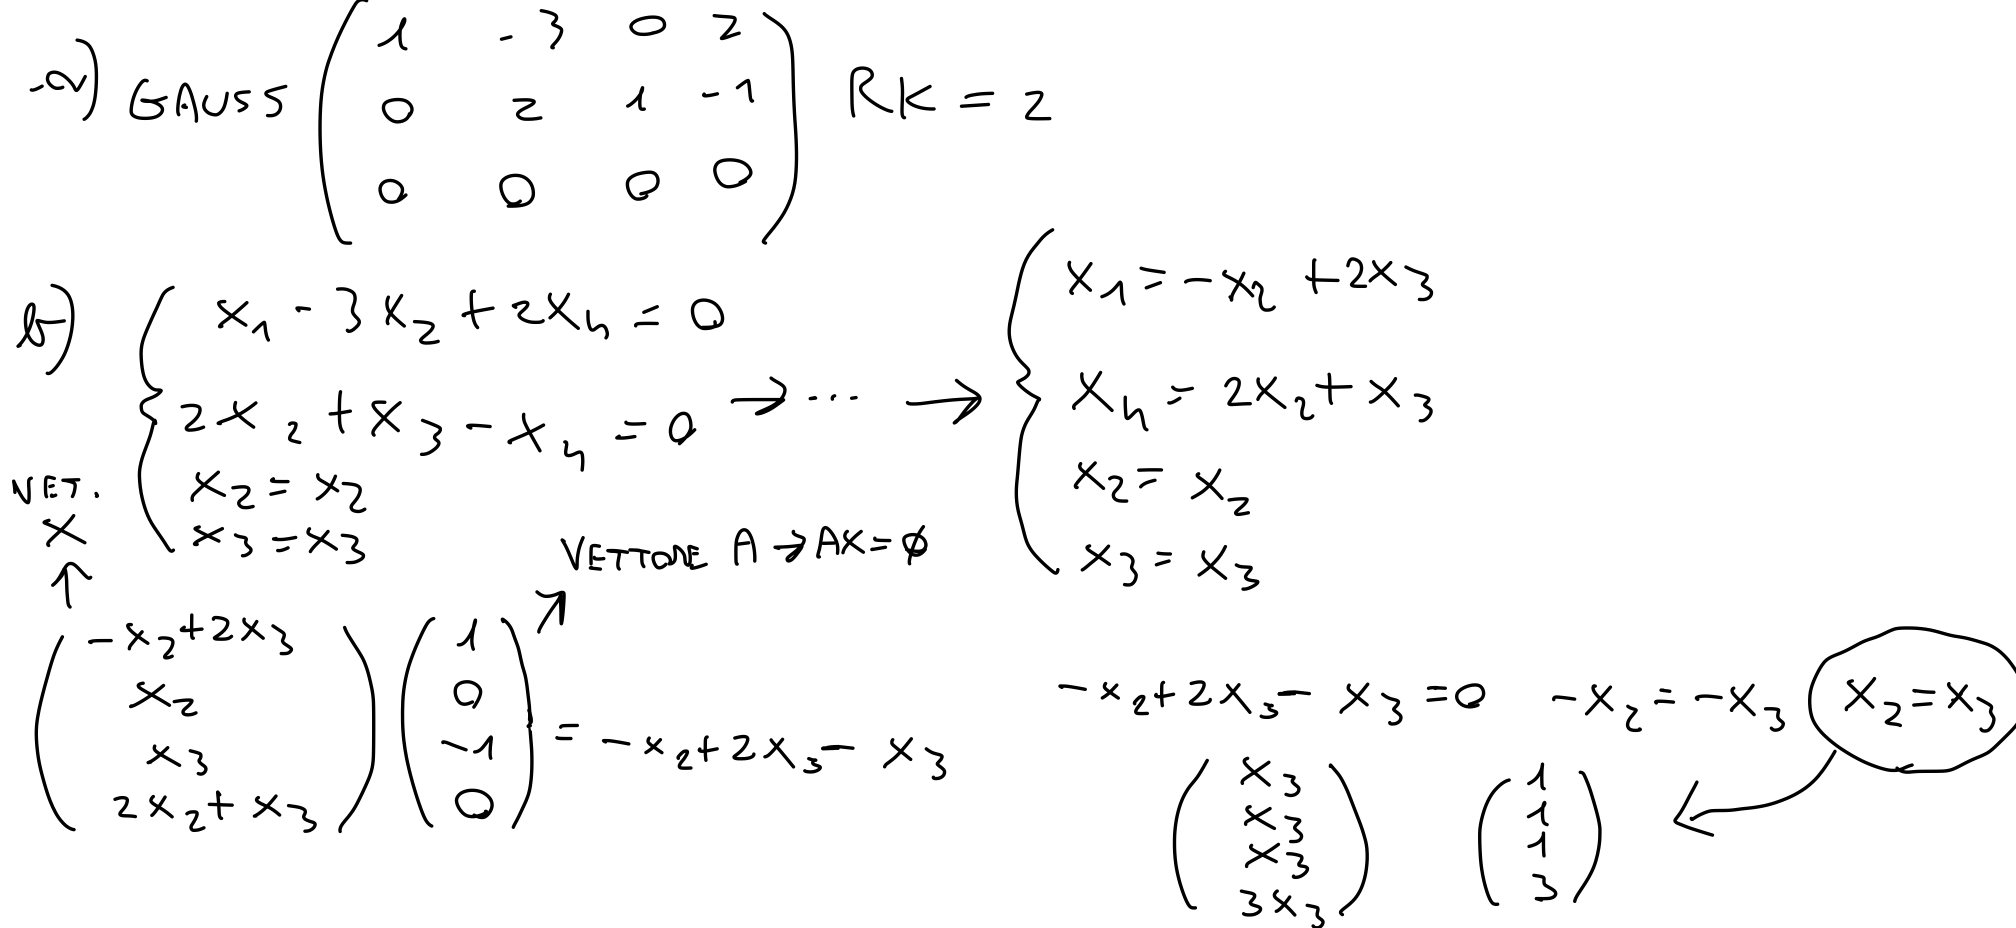 a) GAUSS ( 1 -3 0 2 ) RK = 2
0 2 1 -1
0 0 0 0
b) { x₁ - 3x₂ + 2x₄ = 0
2x₂ + x₃ - x₄ = 0 → ... →
x₂ = x₂
x₃ = x₃
{ x₁ = -x₂ + 2x₃
x₄ = 2x₂ + x₃
x₂ = x₂
x₃ = x₃
VET.
X
↑
VETTORE A → AX = ∅
( -x₂+2x₃ ) ( 1 ) ↗
x₂ 0
x₃ -1
2x₂+x₃ 0
= -x₂+2x₃- x₃
-x₂+2x₃- x₃ = 0 -x₂ = -x₃ x₂ = x₃
( x₃ ) ( 1 ) ←
x₃ 1
x₃ 1
3x₃ 3